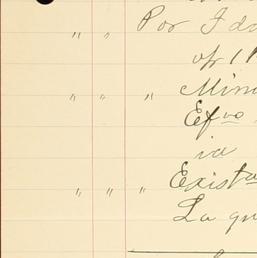 " " Por I d
of 1
" " " Mini
Ef.vo
ia
" " " Exista
La qu